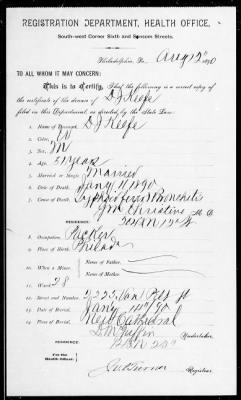 REGISTRATION DEPARTMENT, HEALTH OFFICE,
South-west Corner Sixth and Sansom Streets.
Philadelphia, Pa., Aug 12" 1890
TO ALL WHOM IT MAY CONCERN:
This is to Certify, That the following is a correct copy of
the certificate of the decease of D J Keefe
filed in this Department as directed by the State Law:
1. Name of Deceased, D J Keefe
2. Color, W
3. Sex, M
4. Age, 51 years
5. Married or Single, Married
6. Date of Death, Jany 11 1890
7. Cause of Death, Bronchitis
J M Christine M. D.
RESIDENCE,
8. Occupation, Packer
9. Place of Birth, Philada
10. When a Minor, Name of Father,
Name of Mother,
11. Ward, 28
12. Street and Number, 2223 Van Pelt st
13. Date of Burial, Jany 14" 90
14. Place of Burial, New Cathedral
Undertaker.
RESIDENCE,
For the
Health Officer.
Registrar.